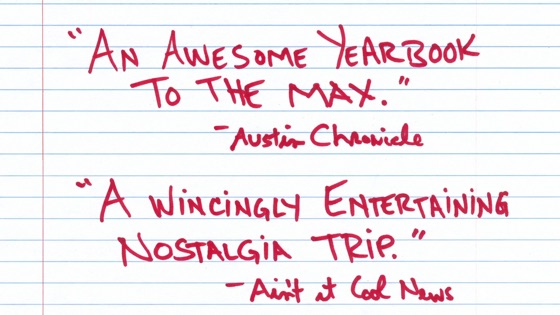 "AN AWESOME YEARBOOK
TO THE MAX."
-Austin Chronicle
"A WINCINGLY ENTERTAINING
NOSTALGIA TRIP."
-Ain't it Cool News